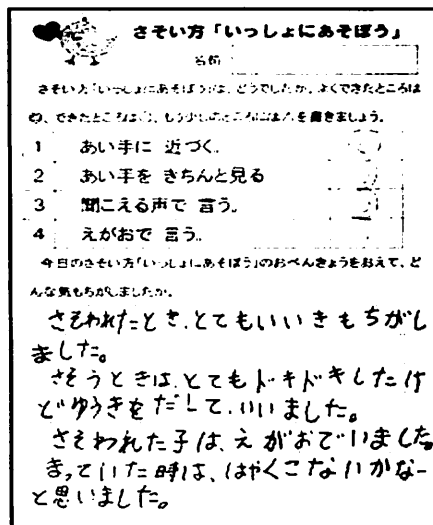 さそい方「いっしょにあそぼう」
名前
さそい方「いっしょにあそぼう」は、どうでしたか。よくできたところは
◎、できたところは○、もう少しのところには△を書きましょう。
1 あい手に 近づく。
2 あい手を きちんと見る
3 聞こえる声で 言う。
4 えがおで 言う。
今日のさそい方「いっしょにあそぼう」のおべんきょうをおえて、ど
んな気もちがしましたか。
さそわれたとき、とてもいいきもちがし
ました。
さそうときは、とてもドキドキしたけ
どゆうきをだして、いいました。
さそわれた子は、えがおでいました。
まっていた時は、はやくこないかなー
と思いました。